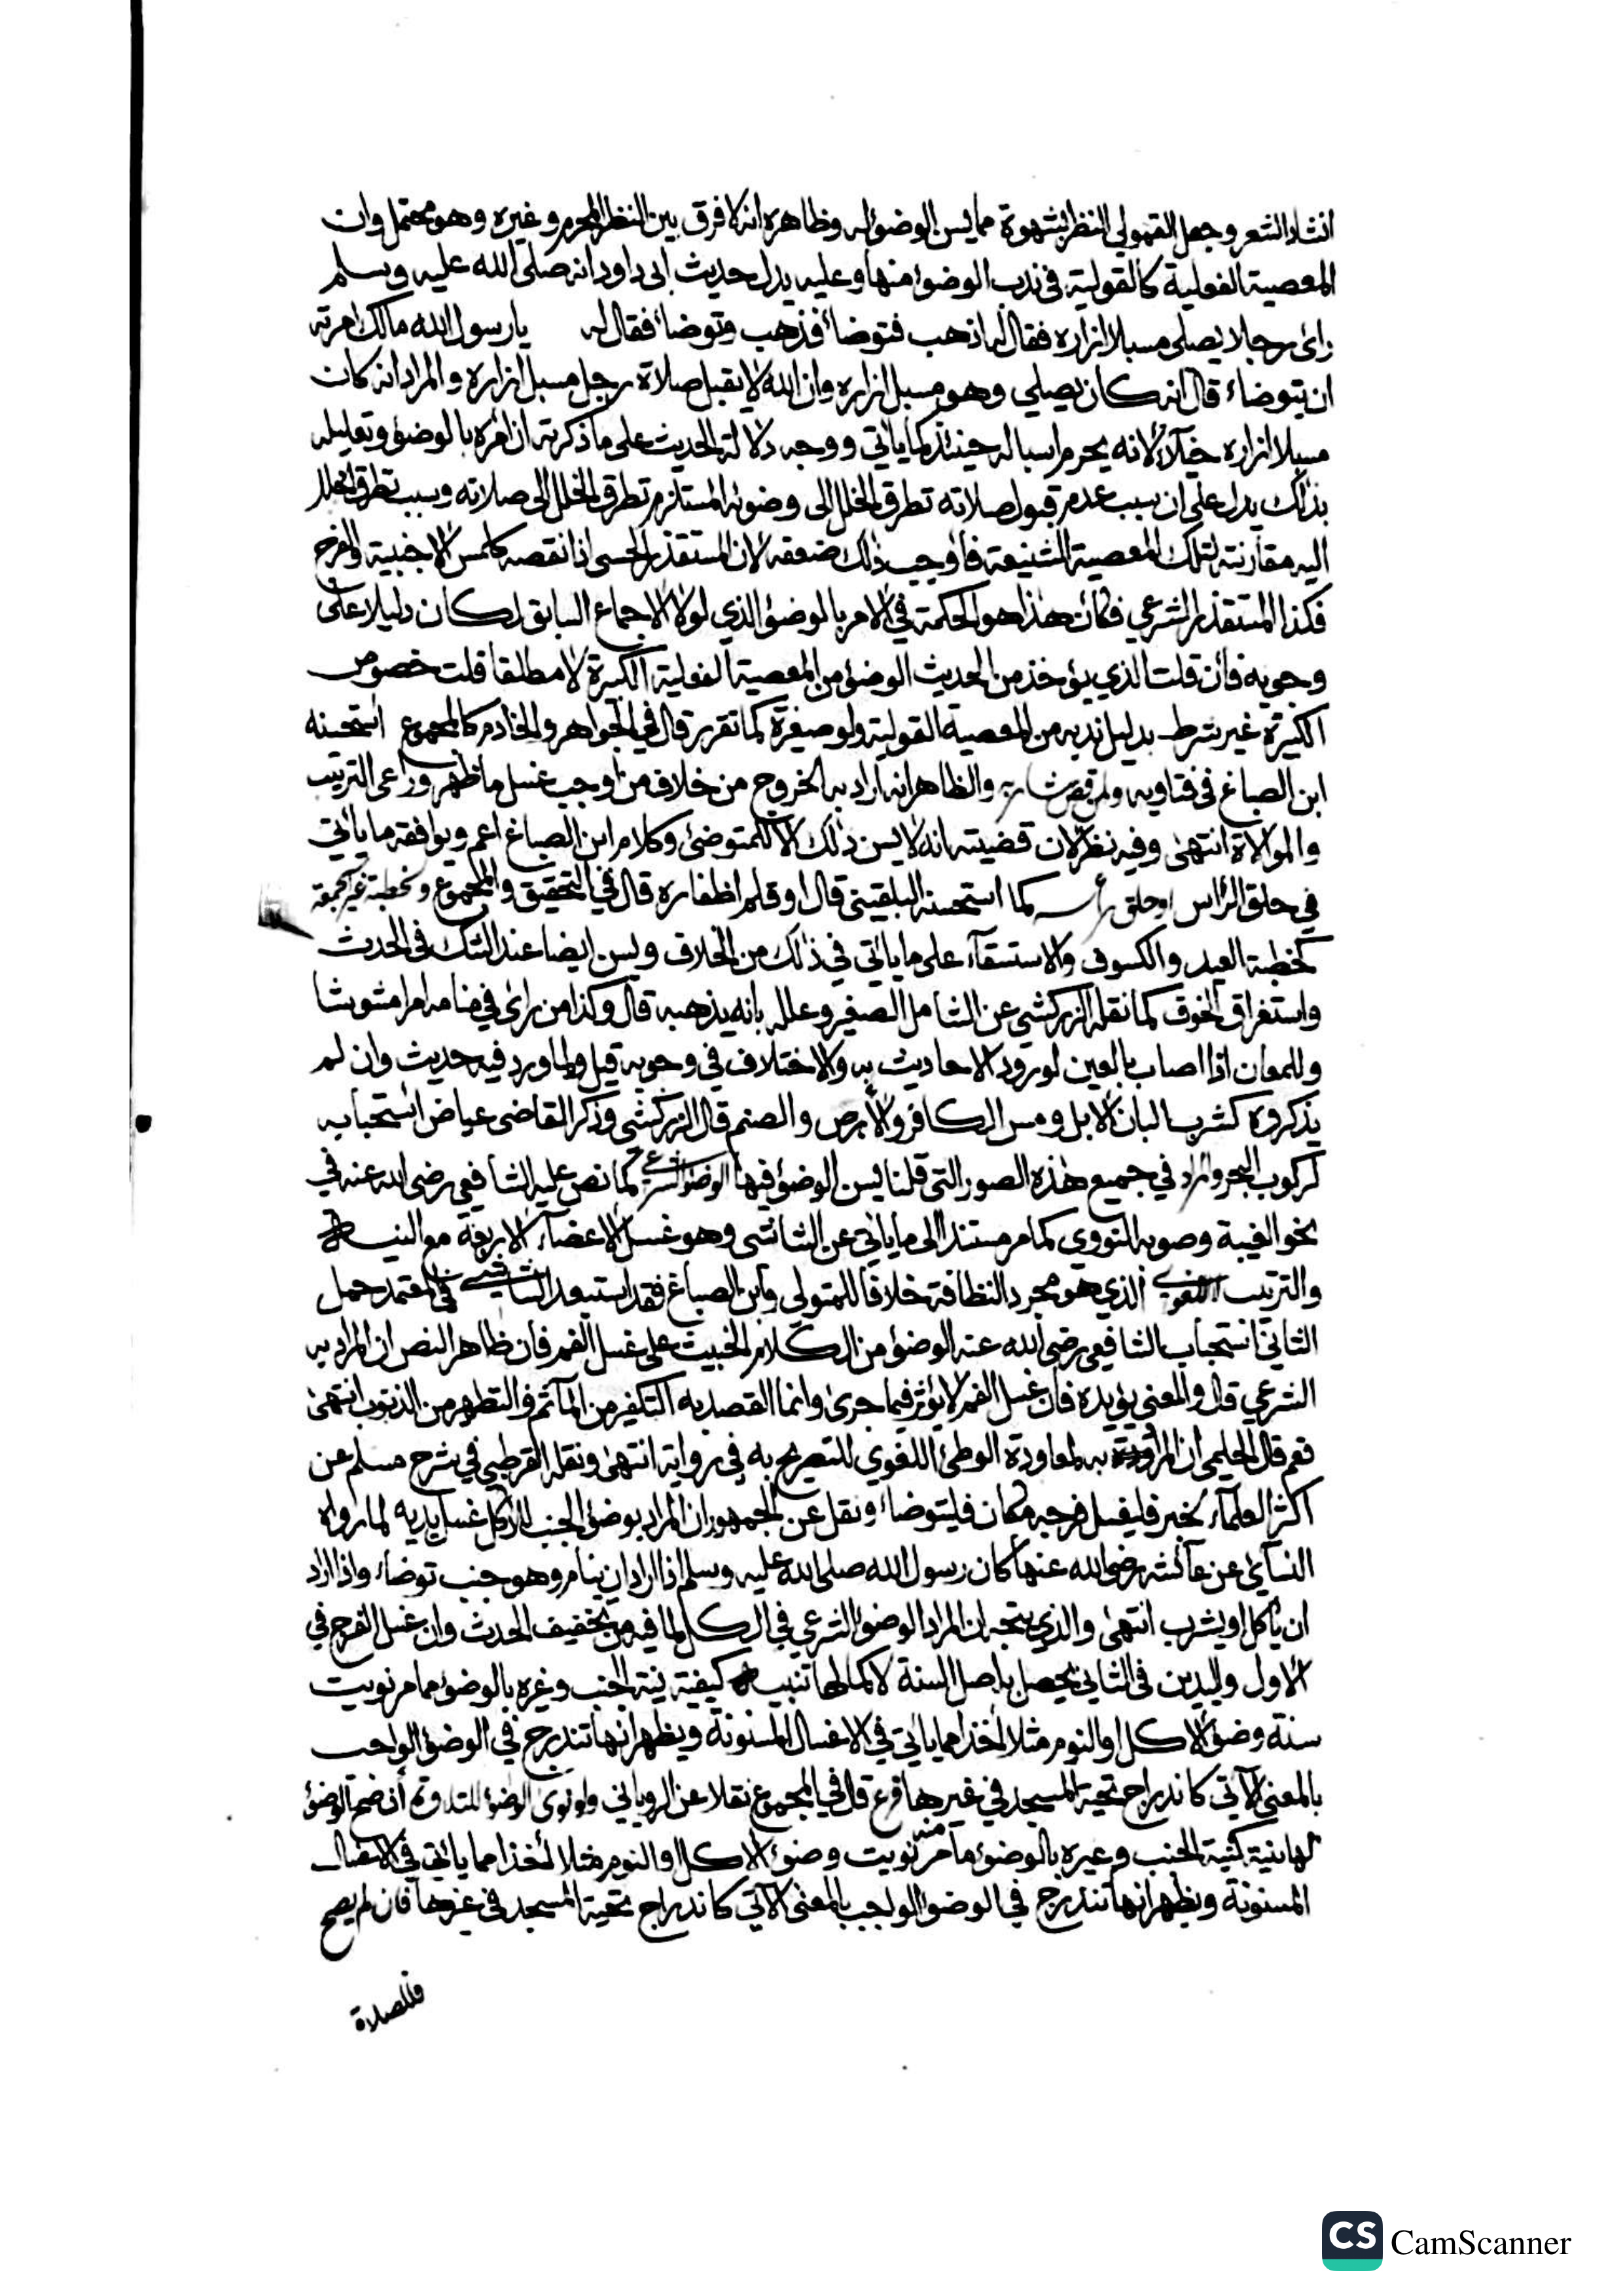 انشاد الشعر وجعل القمولي النظر بشهوة مما يسن الوضوء له وظاهره انه لا فرق بين النظر المحرم وغيره وهو محتمل وان
المعصية الفعلية كالقولية في ندب الوضوء منها وعليه يدل حديث ابى داود انه صلى الله عليه وسلم
رائ رجلا يصلى مسبلا ازاره فقال له اذهب فتوضا فذهب وتوضا فقال له يا رسول الله مالك امرته
ان يتوضاء قال انه كان يصلي وهو مسبل ازاره وان الله لا يقبل صلاة رجل مسبل ازاره والمراد انه كان
مسبلا ازاره خيلآء لانه يحرم اسباله حينئذ كما ياتي ووجه دلالة الحديث على ما ذكرته ان امره بالوضوء وتعليله
بذلك يدل على ان سبب عدم قبول صلاته تطرق الخلل الى وضوئه المستلزم تطرق الخلل الى صلاته وسبب تطرق الخلل
اليه مقارنته لتلك المعصية الشنيعة فاوجب ذلك ضعفه لان المستقذر الحسي اذا نقصه كلمس الاجنبية والفرج
فكذا المستقذر الشرعي فكان هذا هو الحكمة في الامر بالوضوء الذي لولا الاجماع السابق لكان دليلا على
وجوبه فان قلت الذي يؤخذ من الحديث الوضوء من المعصية الفعلية الكبيرة لا مطلقا قلت خصوص
الكبيرة غير شرط بدليل ندبه من المعصية القولية ولو صغيرة كما تقرر قال في الجواهر والخادم كالمجموع استحسنه
ابن الصباغ فى فتاويه ولمن قص شاربه والظاهر انه اراد به الخروج من خلاف من اوجب غسل ما ظهر وراعى الترتيب
والموالاة انتهى وفيه نظر لان قضيته انه لا يسن ذلك الا للمتوضئ وكلام ابن الصباغ اعم ويوافقه ما ياتي
في حلق الرأس او حلق رأسه كما استحسنه البلقينى قال او قلم اظفاره قال في التحقيق والمجموع ولخطبة غير الجمعة
كخطبة العيد والكسوف والاستسقآء على ما ياتي في ذلك من الخلاف ويسن ايضا عند الشك فى الحدث
واستغراق الخوف كما نقله الزركشي عن الشامل الصغير وعلله بانه يذهبه قال وكذا من رائ في منامه امرا مشوشا
وللمعان اذا اصاب بالعين لورود الاحاديث به والاختلاف في وجوبه قيل ولما ورد فيه حديث وان لم
يذكروه كشرب البان الابل ومس الكافر والابرص والصنم قال الزركشي وذكر القاضى عياض استحبابه
لركوب البحر والمراد في جميع هذه الصور التى قلنا يسن الوضوء فيها الوضوء الشرعي كما نص عليه الشافعي رضى الله عنه في
نحو الغيبة وصوبه النووي كما مر مستندا الى ما ياتي عن الشاشي وهو غسل الاعضآء الاربعة مع النية
والترتيب اللغوي الذي هو مجرد النظافة خلافا للمتولي وابن الصباغ فقد استبعد الشاشي في المعتمد حمل
الثاني استحباب الشافعي رضى الله عنه الوضوء من الكلام الخبيث على غسل الفم فان ظاهر النص ان المراد به
الشرعي قال والمعنى يؤيده فان غسل الفم لا يؤثر فيما جرى وانما القصد به التكفير من المآثم والتطهر من الذنوب انتهى
نعم قال الحليمي ان المراد به لمعاودة الوطئ اللغوي للتصريح به في رواية انتهى ونقله القرطبي في شرح مسلم عن
اكثر العلمآء لخبر فليغسل فرجه مكان فليتوضاء ونقل عن الجمهور ان المراد بوضوء الجنب للاكل غسل يديه لما رواه
النسآئي عن عآئشه رضى الله عنها كان رسول الله صلى الله عليه وسلم اذا اراد ان ينام وهو جنب توضاء واذا اراد
ان ياكل او يشرب انتهى والذي يتجه ان المراد الوضوء الشرعي في الكل لما فيه من تخفيف الحدث وان غسل الفرج في
الاول واليدين فى الثاني يحصل به اصل السنة لا كمالها تنبيه كيفية نية الجنب وغيره بالوضوء مما مر نويت
سنة وضوء الاكل او النوم مثلا اخذا مما ياتي في الاغسال المسنونة ويظهر انها تندرج في الوضوء الواجب
بالمعنى الآتي كاندراج تحية المسجد في غيرها فرع قال في المجموع نقلا عن الروياني ولو نوى الوضوء للتلاوة أن صح الوضوء
لها بنية كنية الجنب وغيره بالوضوء مما مر نويت وضوء الاكل او النوم مثلا اخذا مما ياتي في الاغسال
المسنونة ويظهر انها تندرج في الوضوء الواجب بالمعنى الآتي كاندراج تحية المسجد في غيرها فان لم يصح
فللصلاة
CS CamScanner